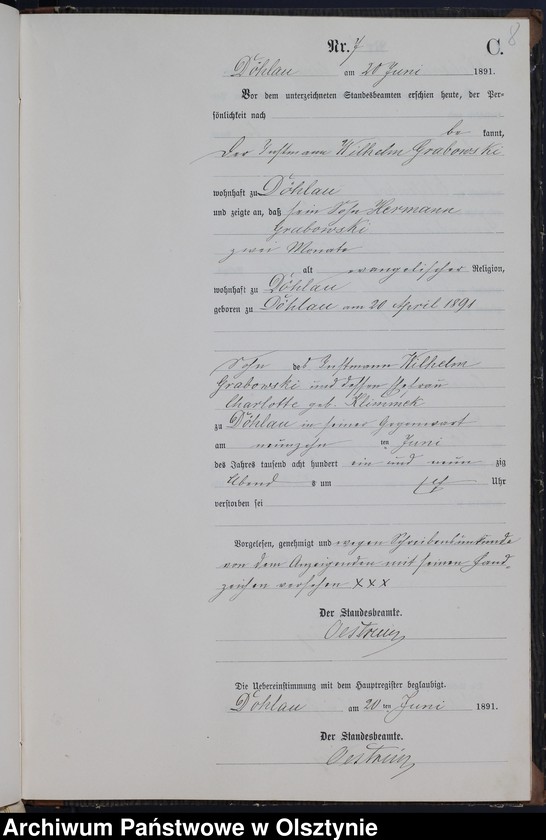 8
Nr. 7
C.
Döhlau am 20 Juni 1891.
Vor dem unterzeichneten Standesbeamten erschien heute, der Per-
sönlichkeit nach
be kannt,
der Instmann Wilhelm Grabowski
wohnhaft zu Döhlau
und zeigte an, daß sein Sohn Hermann
Grabowski
zwei Monate
alt evangelischer Religion,
wohnhaft zu Döhlau
geboren zu Döhlau am 20 April 1891
Sohn des Instmann Wilhelm
Grabowski und dessen Ehefrau
Charlotte geb. Klimmek
zu Döhlau in seiner Gegenwart
am neunzehn ten Juni
des Jahres tausend acht hundert ein und neun zig
Abend s um Uhr
verstorben sei
Vorgelesen, genehmigt und wegen Schreibensunkunde
von dem Anzeigenden mit seinen Hand-
zeichen versehen XXX
Der Standesbeamte.
Die Uebereinstimmung mit dem Hauptregister beglaubigt.
Döhlau am 20 ten Juni 1891.
Der Standesbeamte.
Archiwum Państwowe w Olsztynie